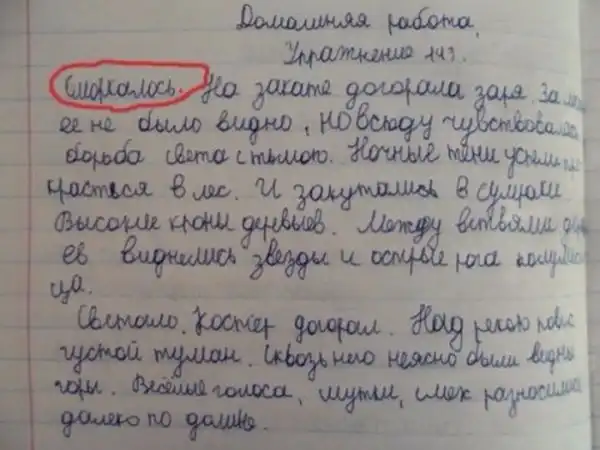 Домашняя работа.
Упражнение 443.
Сморкалось. На закате догорала заря. За
ее не было видно, но всюду чувствовалась
борьба света с тьмою. Ночные тени успели
красться в лес. И закутались в сумраки
Высокие кроны деревьев. Между ветвями
ев виднелись звезды и острые рога
ца.
Светало. Костёр догорал. Над рекою повис
густой туман. Сквозь него неясно были видны
горы. Весёлые голоса, шутки, смех разносились
далеко по долине.